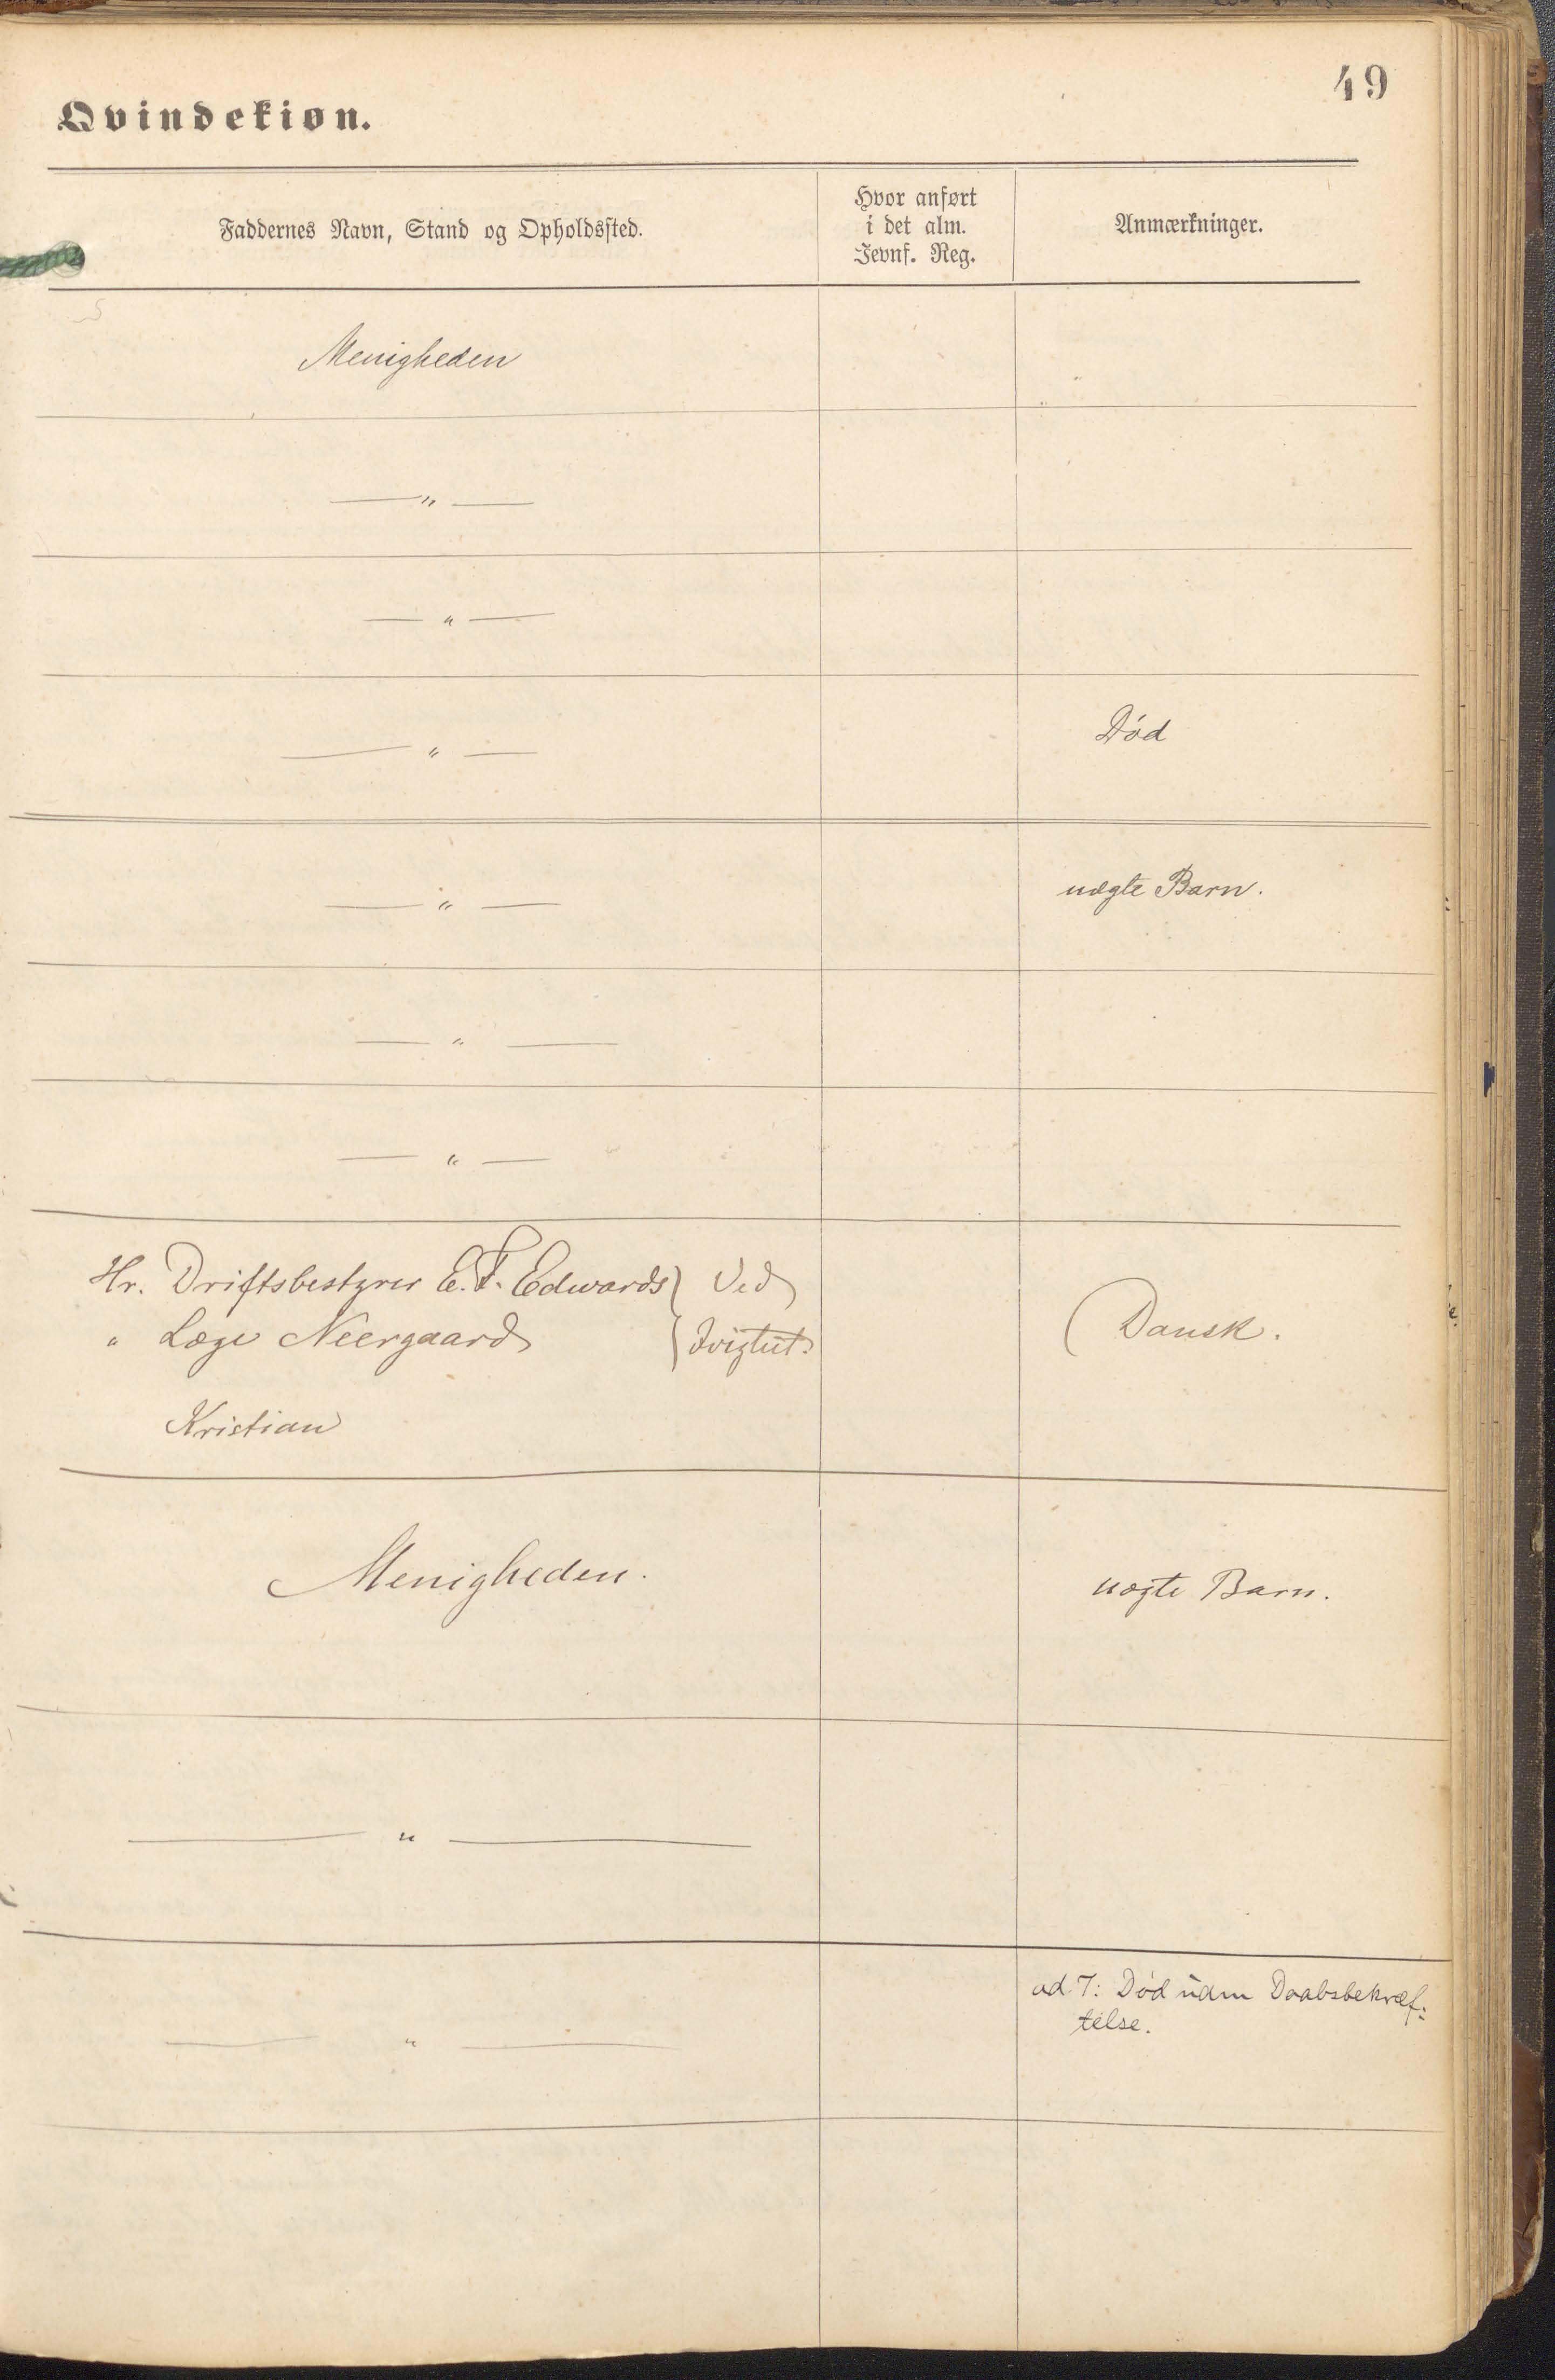 49
Qvindekiøn.
Faddernes Navn, Stand og Opholdssted.
Hvor anført
i det alm.
Jevnf. Reg.
Anmærkninger.
Menigheden
— " —
— " —
— " —
Død
— " —
uægte Barn.
— " —
— " —
Hr. Driftsbestyrer E. F. Edwards } Ved
" Læge Neergaard } Ivigtut.
Kristian
( Dansk.
Menigheden.
uægte Barn.
— " —
— " —
ad 7: Død uden Daabsbekræf:
telse.